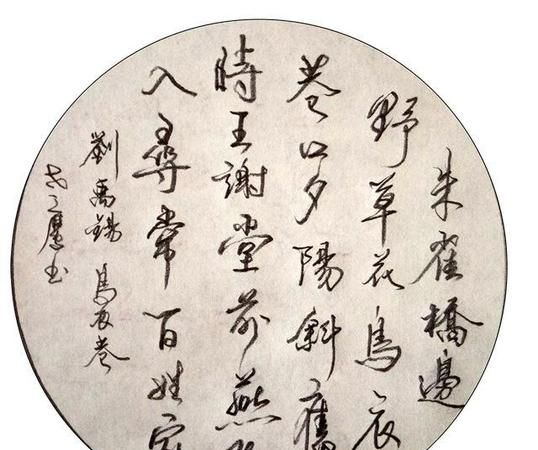 朱雀橋邊
野草花烏衣
巷口夕陽斜舊
時王謝堂前燕
入尋常百姓家
劉禹錫 烏衣巷